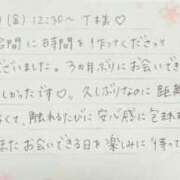 (金) 12:30〜 T様♡
に時間を作ってくださって
ございました。3か月ぶりにお会いでき
しかったです♡。久しぶりなのに
なくて、触れるたびに安心感に包まれ
またお会いできる日を楽しみに待って